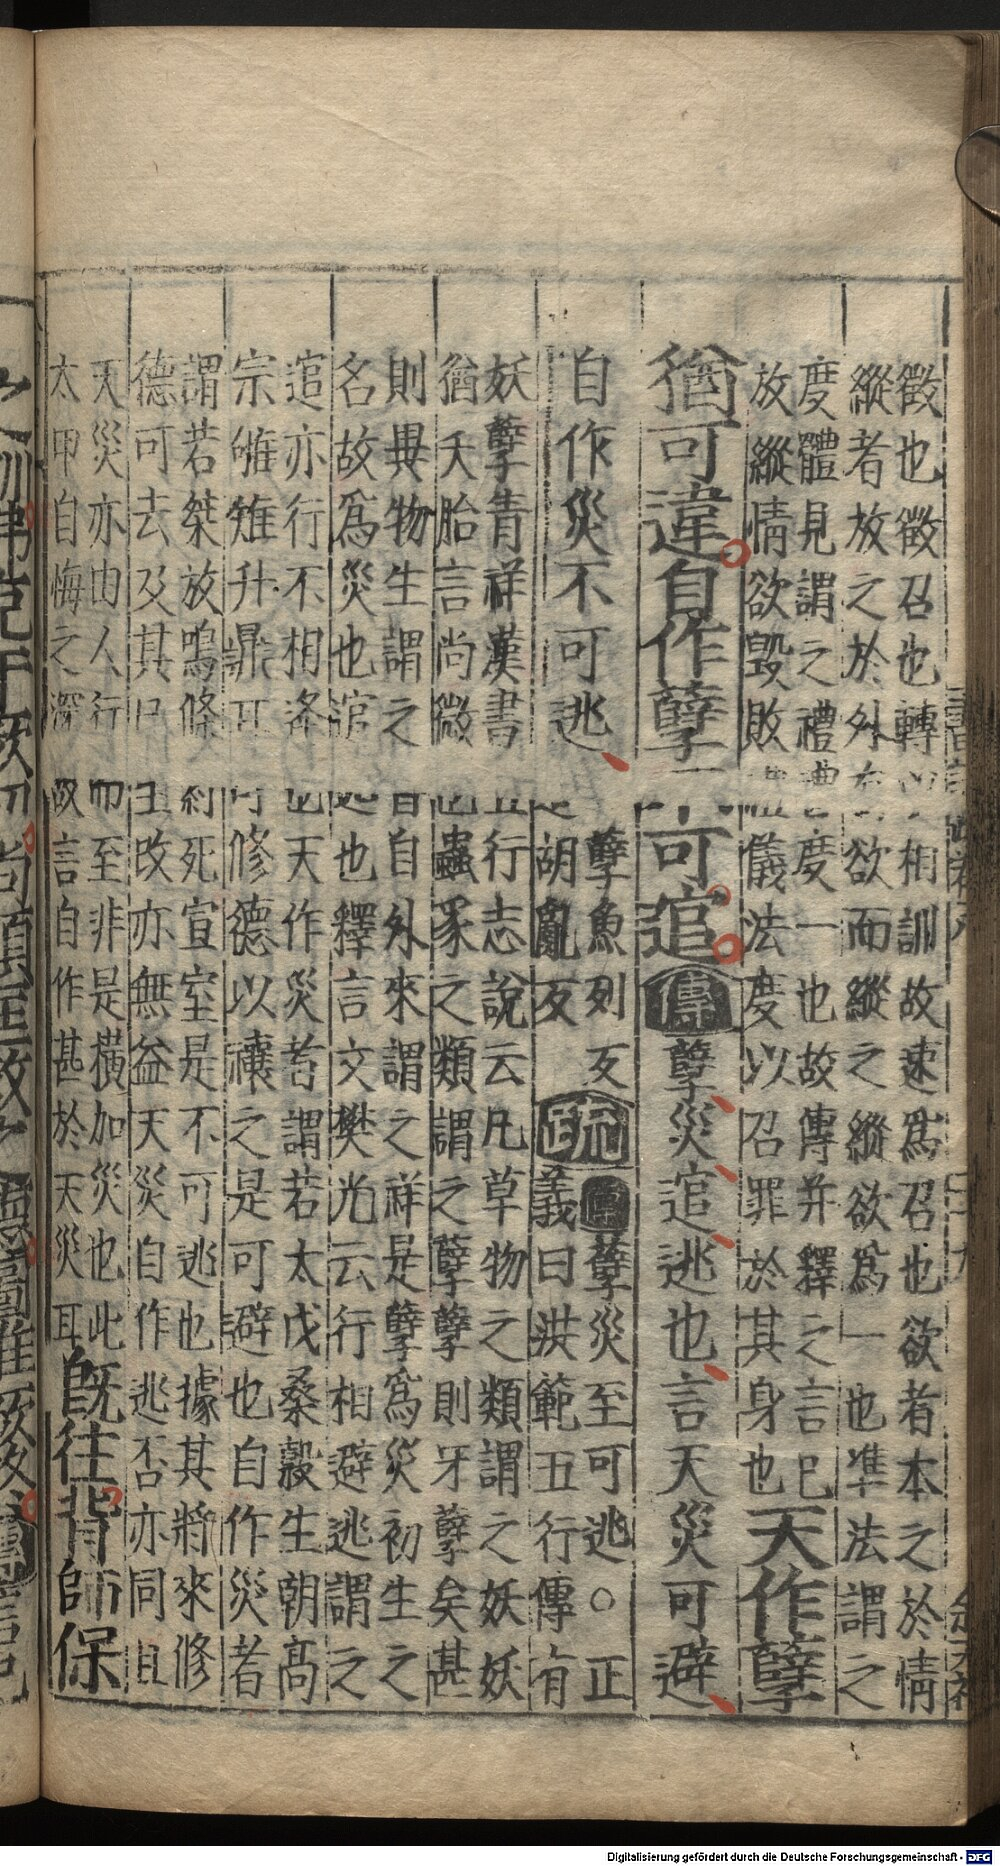 徵也徵召也轉相訓故速爲召也欲者本之於情
縱者放之於外欲而縱之縱欲爲一也準法謂之
度體見謂之禮度一也故傳并釋之言已
放縱情欲毀敗禮儀法度以召罪於其身也天作孽
猶可違自作孽可逭傳孽災逭逃也言天災可避
自作災不可逃孽魚列反疏傳孽災至可逃○正
胡亂反義曰洪範五行傳有
妖孽眚祥漢書五行志說云凡草物之類謂之妖妖
猶夭胎言尚微也蟲豕之類謂之孽孽則牙孽矣甚
則異物生謂之眚自外來謂之祥是孽爲災初生之
名故爲災也逭逃也釋言文樊光云行相避逃謂之
逭亦行不相逢也天作災者謂若太戊桑榖生朝高
宗雊雉升鼎耳可修德以禳之是可避也自作災者
謂若桀放鳴條紂死宣室是不可逃也據其將來修
德可去及其已至改亦無益天災自作逃否亦同且
天災亦由人行而至非是橫加災也此
太甲自悔之深故言自作甚於天災耳既往背師保
Digitalisierung gefördert durch die Deutsche Forschungsgemeinschaft - DFG